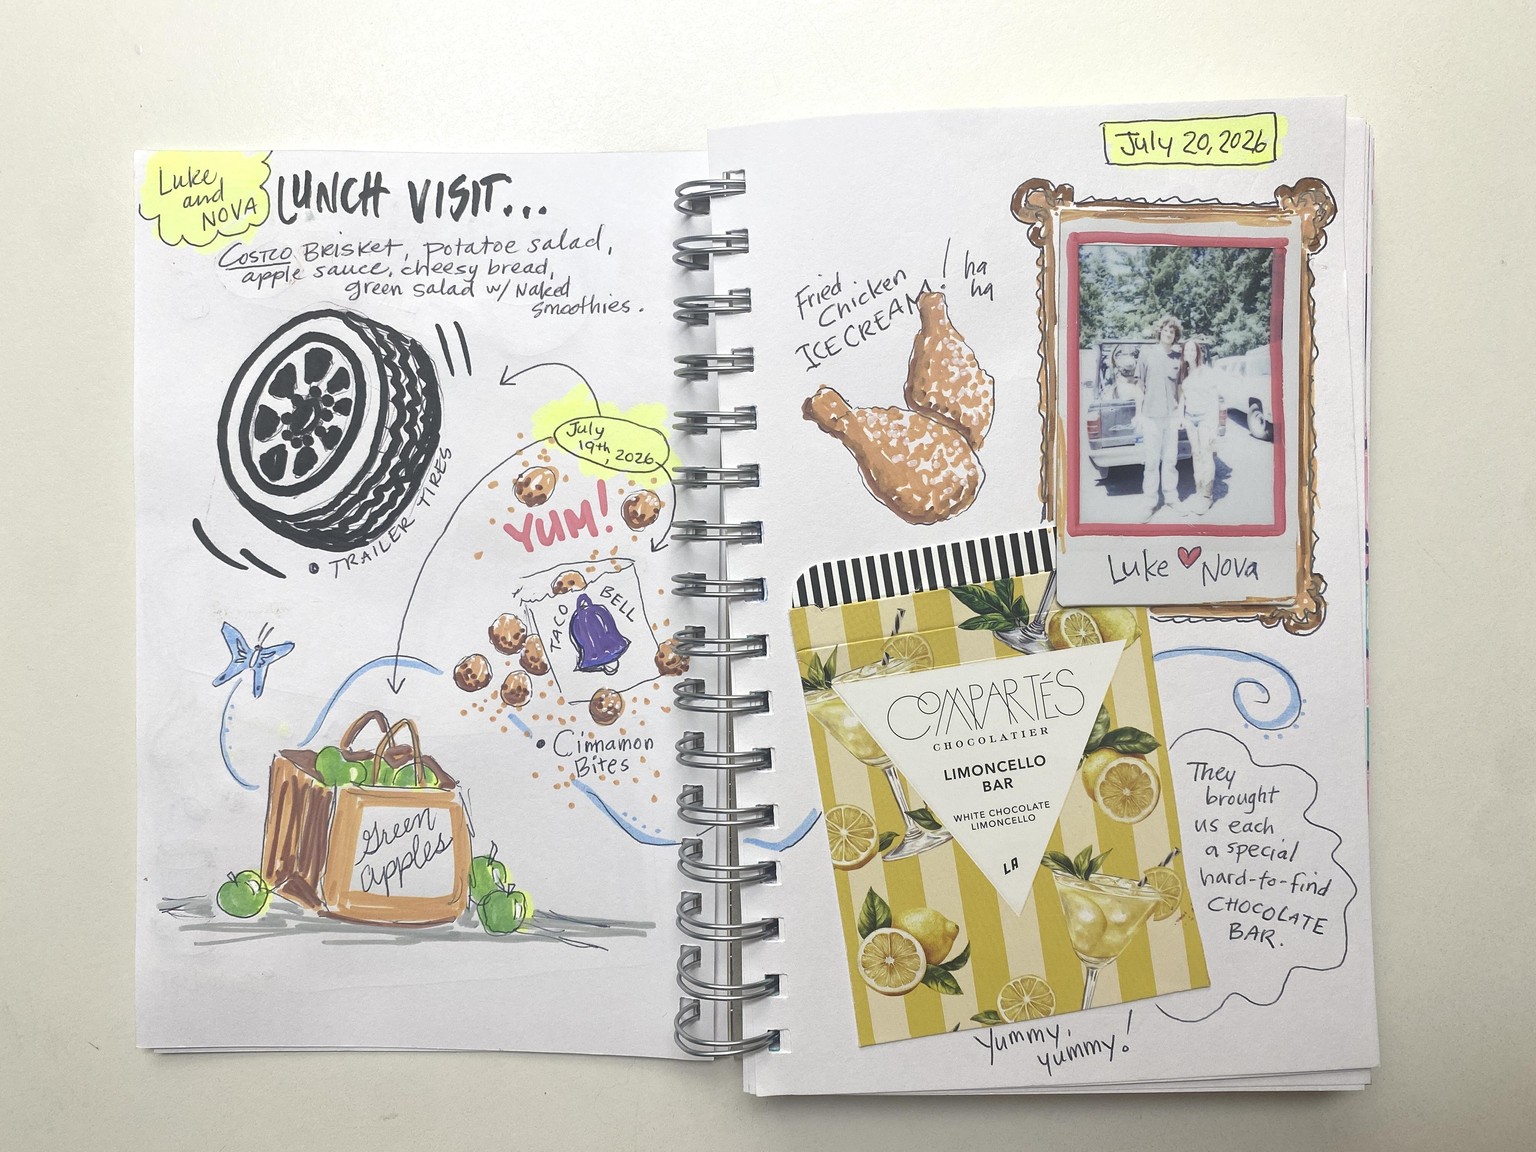 Luke
and
NOVA
LUNCH VISIT...
COSTCO BRISKET, potatoe salad,
apple sauce, cheesy bread,
green salad w/ Naked
smoothies.
• TRAILER TIRES
July
19th, 2026
YUM!
TACO BELL
• Cinnamon
Bites
Green
apples
July 20, 2026
Fried
Chicken
ICE CREAM!
ha
ha
Luke ♥ Nova
COMPARTÉS
CHOCOLATIER
LIMONCELLO
BAR
WHITE CHOCOLATE
LIMONCELLO
LA
They
brought
us each
a special
hard-to-find
CHOCOLATE
BAR.
Yummy,
yummy!